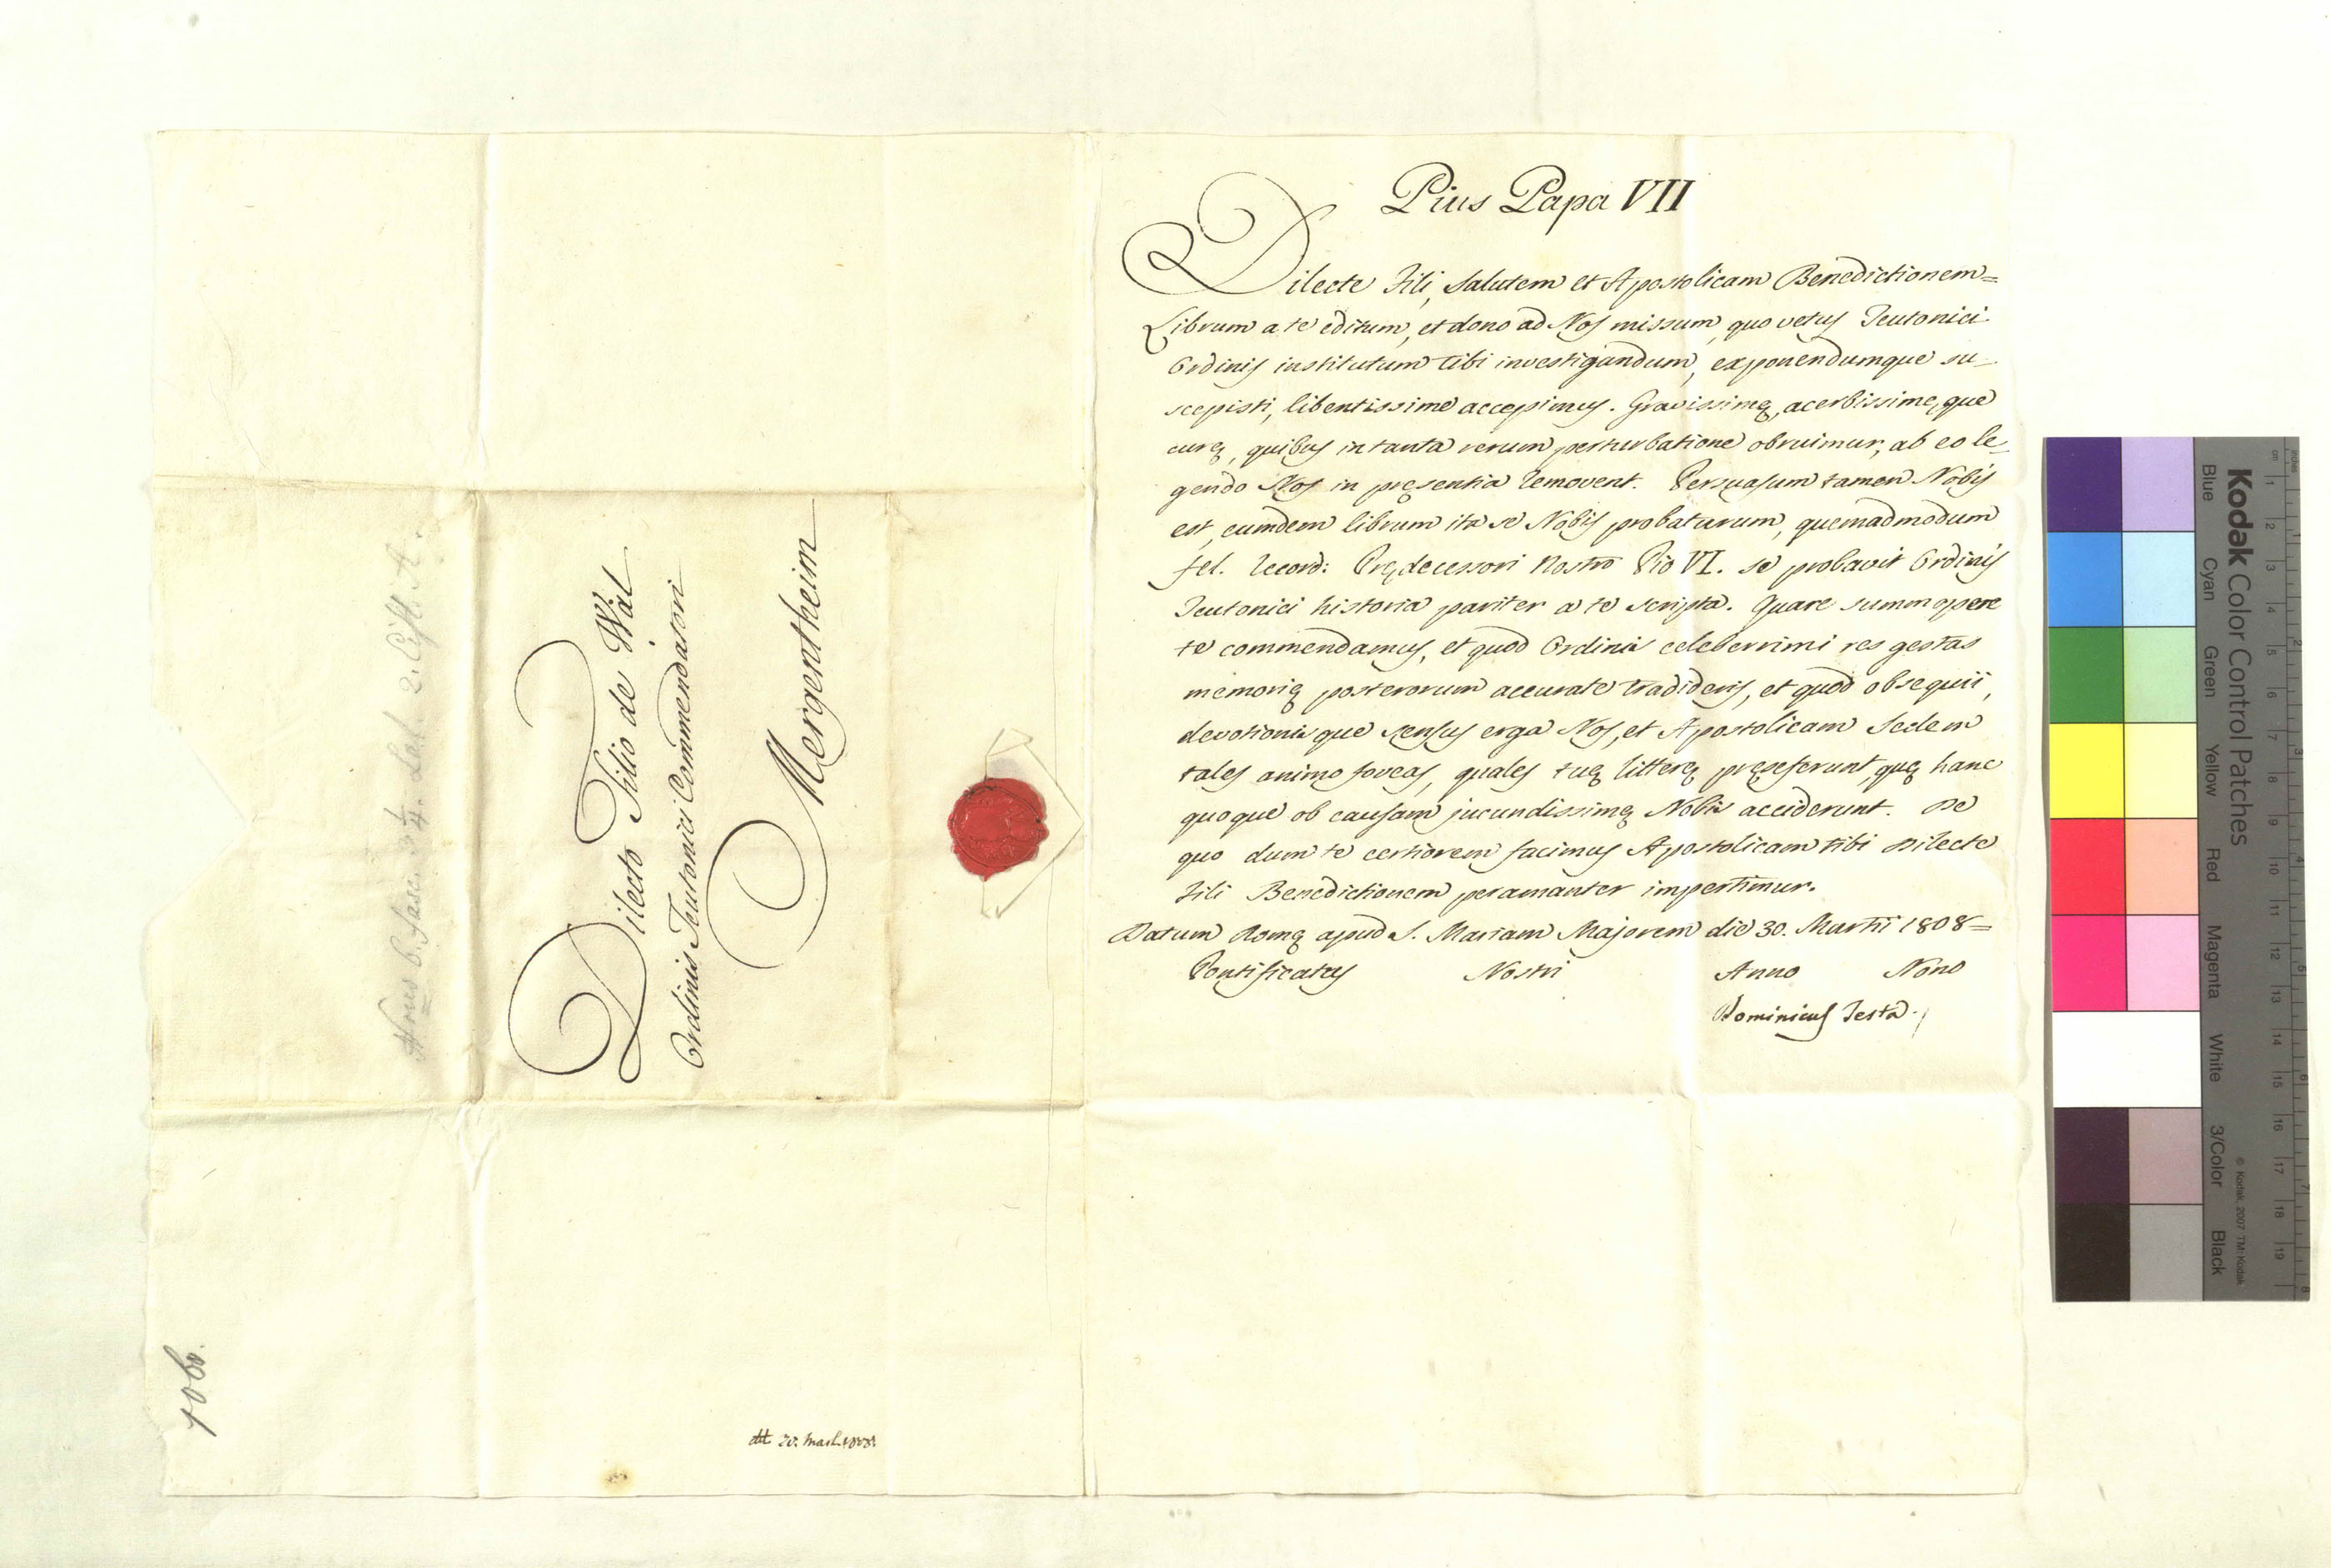 Pius Papa VII
Dilecte Fili, salutem et Apostolicam Benedictionem=
Librum a te editum, et dono ad Nos missum, quo vetus Teutonici
Ordinis institutum tibi investigandum, exponendumque su-
scepisti, libentissime accepimus. Gravissimę, acerbissimęque
curę, quibus in tanta rerum perturbatione obruimur, ab eo le-
gendo Nos in pręsentia removent. Persuasum tamen Nobis
est, eumdem librum ita se Nobis probaturum, quemadmodum
fel. record: Prędecessori Nostro Pio VI. se probavit Ordinis
Teutonici historia pariter a te scripta. Quare summopere
te commendamus, et quod Ordinis celeberrimi res gestas
memorię posterorum accurate tradideris, et quod obsequii,
devotionisque sensus erga Nos, et Apostolicam Sedem
tales animo foveas, quales tuę litterę pręseferunt, quę hanc
quoque ob causam jucundissimę Nobis acciderunt. De
quo dum te certiorem facimus Apostolicam tibi Dilecte
Fili Benedictionem peramanter impertimur.
Datum Romę apud S. Mariam Majorem die 30. Martii 1808=
Pontificatus Nostri Anno Nono
Dominicus Testa.
Dilecto Filio de Wal
Ordinis Teutonici Commendatori
Mergentheim
6. Fasc. 3/4. Lad. 2. Cist. A.
dtt 30. Mart. 1808.
Kodak Color Control Patches
Blue Cyan Green Yellow Red Magenta White 3/Color Black
© Kodak, 2007 TM: Kodak
inches 1 2 3 4 5 6 7 8
cm 1 2 3 4 5 6 7 8 9 10 11 12 13 14 15 16 17 18 19